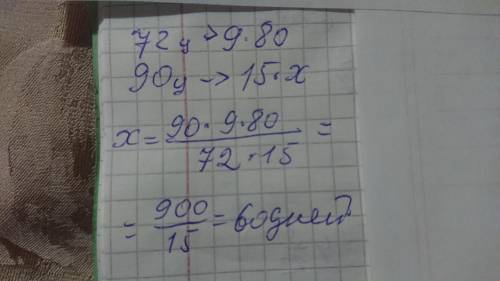 72ц → 9·80
90ц → 15·x
x = 90·9·80 / 72·15 =
= 900 / 15 = 60 дней